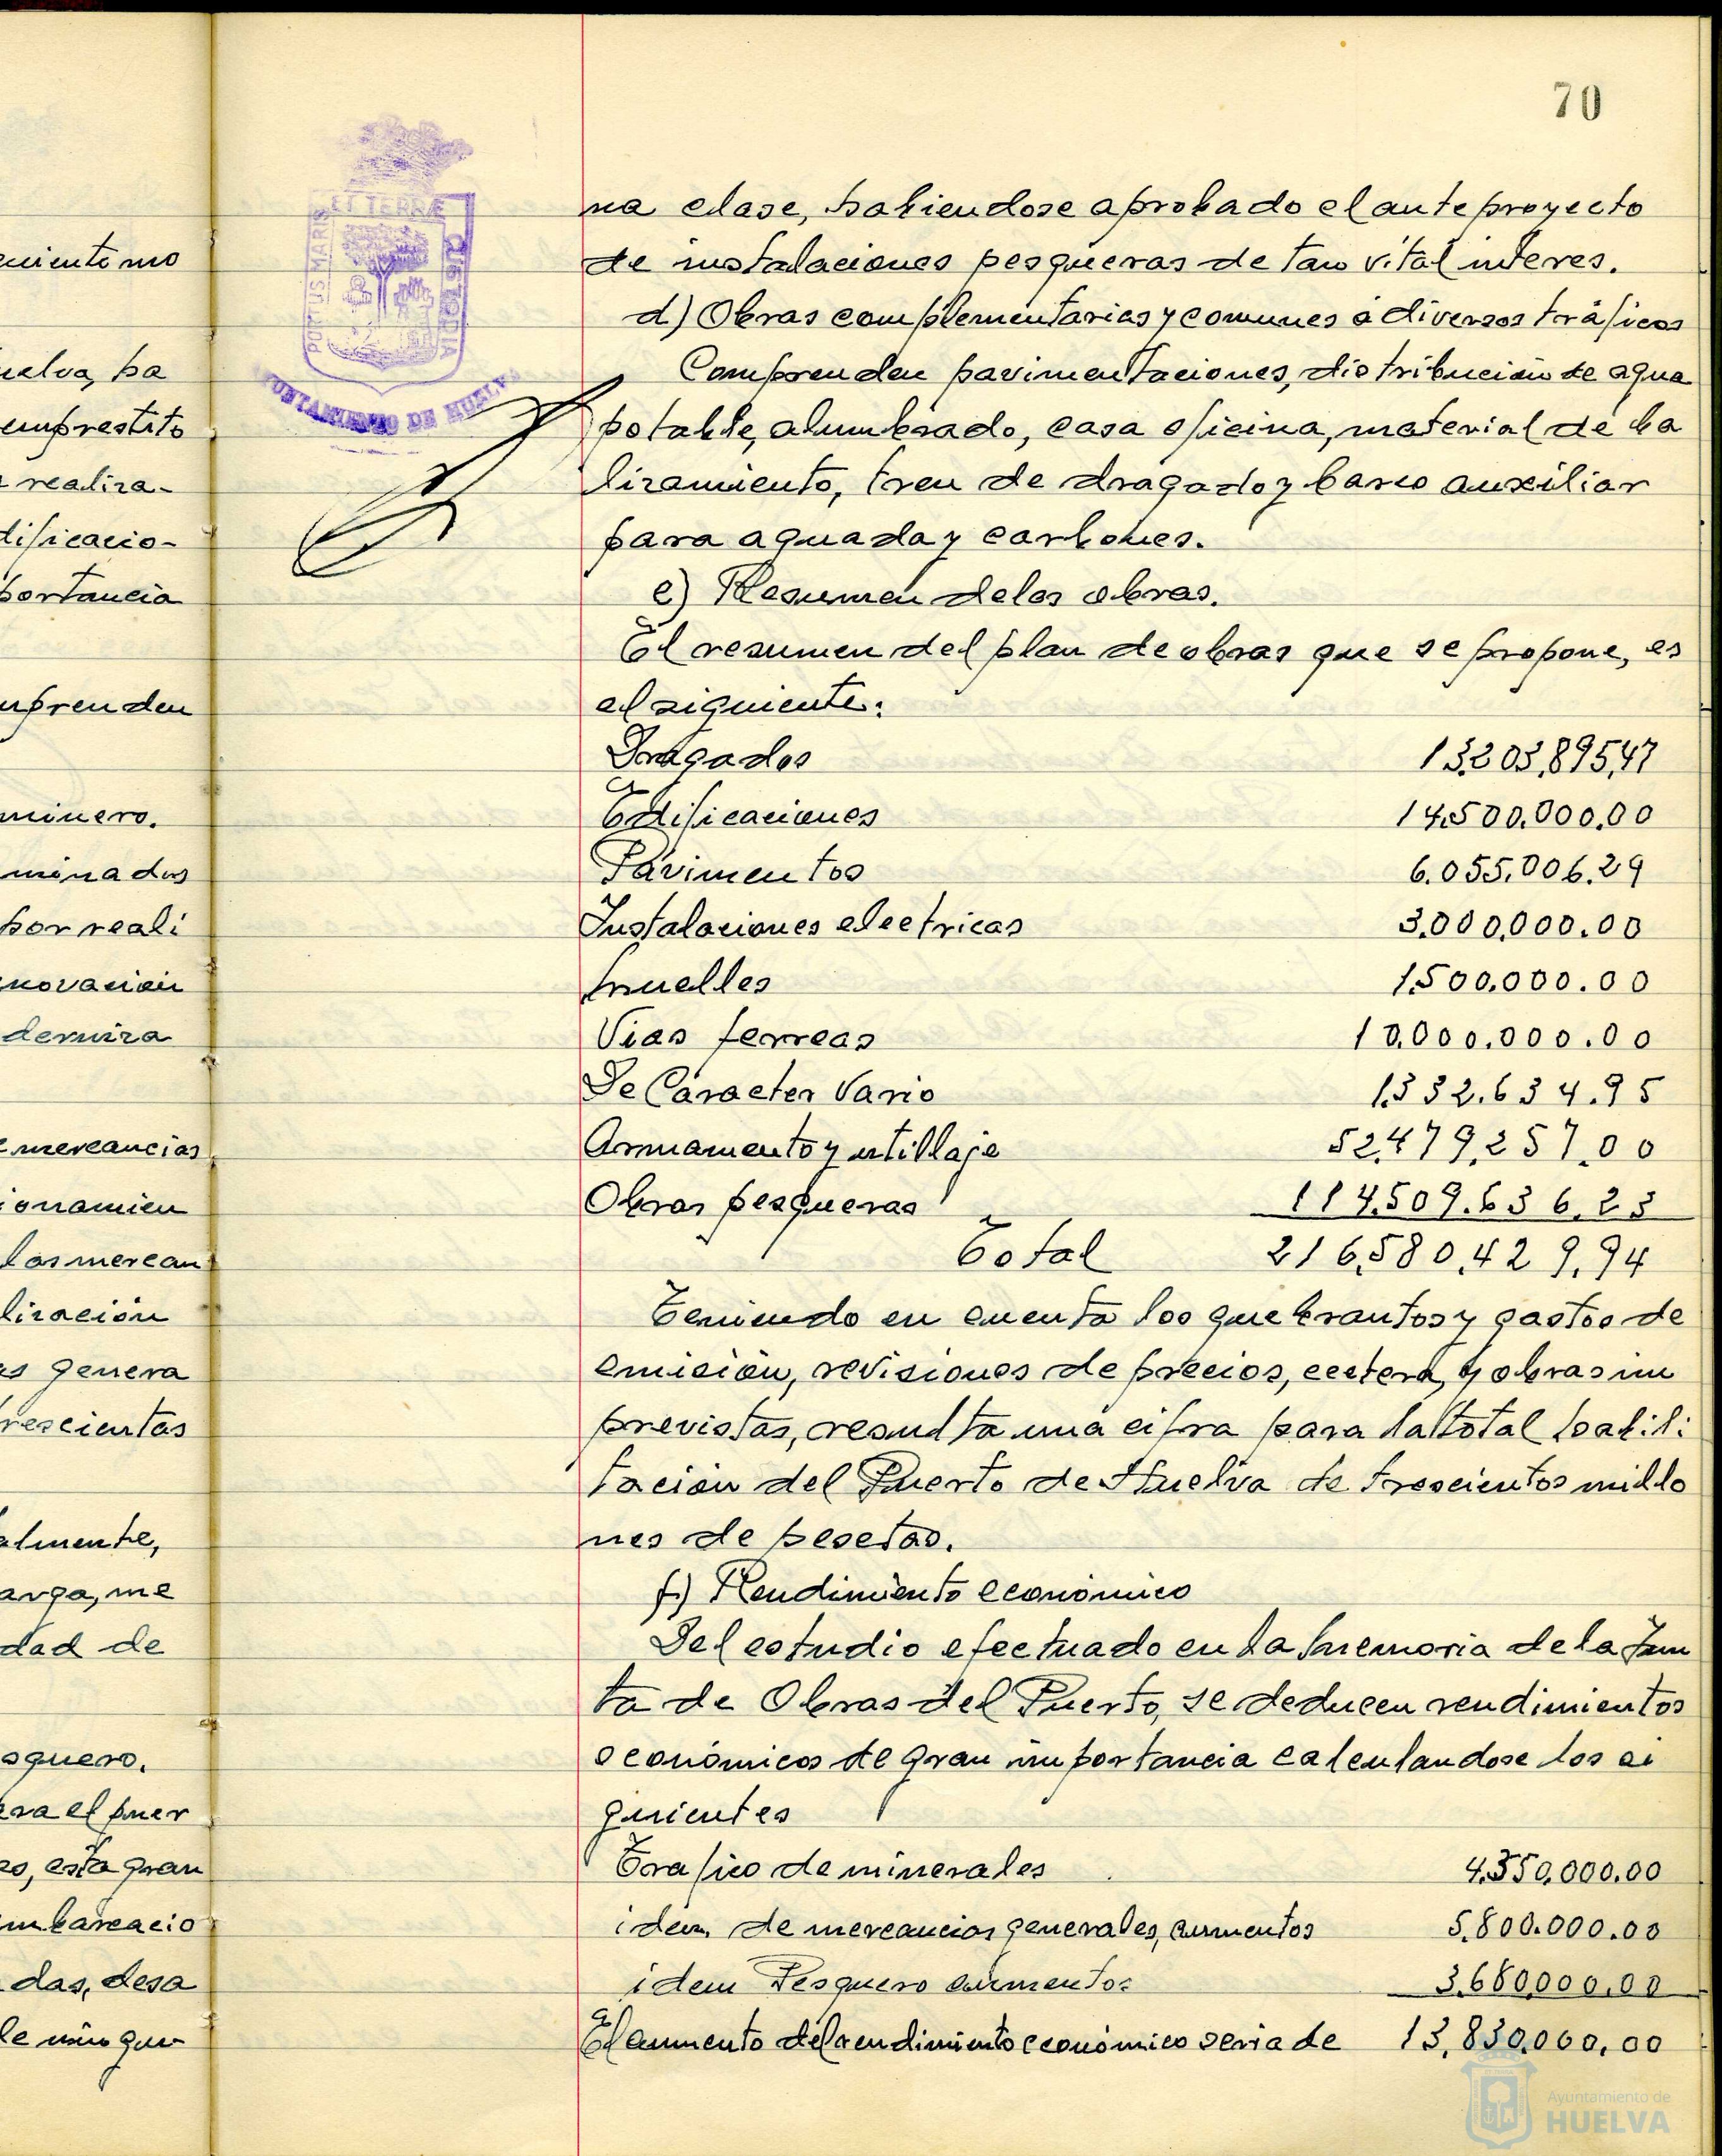 70
ET TERRÆ
PORTUS MARIS
CUSTODIA
AYUNTAMIENTO DE HUELVA
uiento mo
uelva, ha
emprestito
realiza-
dificacio-
portancia
mprenden
minero.
minados
por reali
novación
derniza
mercancias
ionamien
las mercan
lización
as genera
rescientas
almente,
arga, me
dad de
squero.
ara el puer
os, esta gran
mbarcacio
das, desa
de ningu
na clase, habiendose aprobado el anteproyecto
de instalaciones pesqueras de tan vital interes.
d) Obras complementarias y comunes a diversos tráficos
Comprenden pavimentaciones, distribución de agua
potable, alumbrado, casa oficina, material de ba
lizamiento, tren de dragado y barco auxiliar
para aguada y carbones.
e) Resumen de las obras.
El resumen del plan de obras que se propone, es
el siguiente:
Dragados 13.203.895,47
Edificaciones 14.500.000.00
Pavimentos 6.055.006.29
Instalaciones electricas 3.000.000.00
Muelles 1.500.000.00
Vias ferreas 10.000.000.00
De Caracter Vario 1.332.634.95
Armamento y utillaje 52.479.257.00
Obras pesqueras 114.509.636.23
Total 216.580.429,94
Teniendo en cuenta los quebrantos y gastos de
emisión, revisiones de precios, ecetera, y obras im
previstas, resulta una cifra para la total habili
tación del Puerto de Huelva de trescientos millo
nes de pesetas.
f) Rendimiento económico
Del estudio efectuado en la Memoria de la Jun
ta de Obras del Puerto, se deducen rendimientos
economicos de gran importancia calculandose los si
guientes
Trafico de minerales 4.350,000.00
idem de mercancias generales, aumentos 5.800.000.00
idem Pesquero aumentos 3.680.000.00
El aumento del rendimiento económico seria de 13.830.000,00
Ayuntamiento de
HUELVA